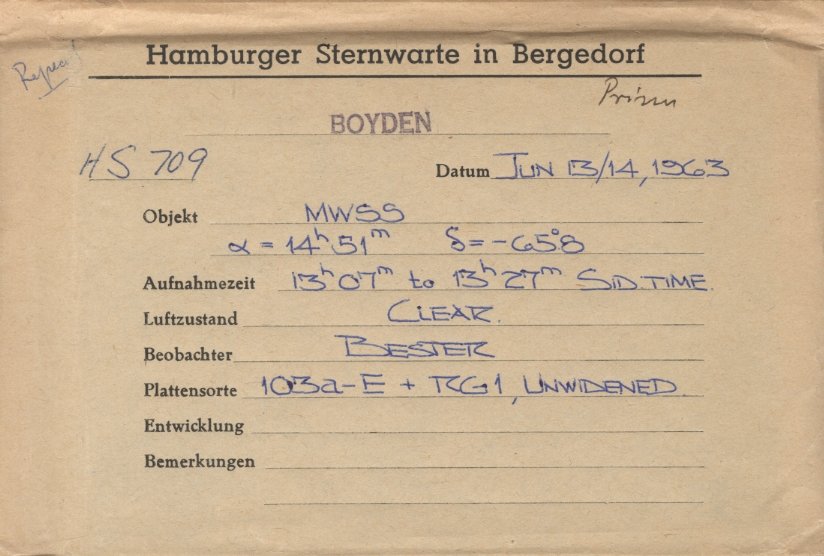 Hamburger Sternwarte in Bergedorf
Repeat
Prism
BOYDEN
HS 709
Datum JUN 13/14, 1963
Objekt MWSS
α = 14h 51m δ = -65°8
Aufnahmezeit 13h 07m to 13h 27m SID. TIME.
Luftzustand CLEAR.
Beobachter BESTER
Plattensorte 103a-E + RG1, UNWIDENED.
Entwicklung
Bemerkungen